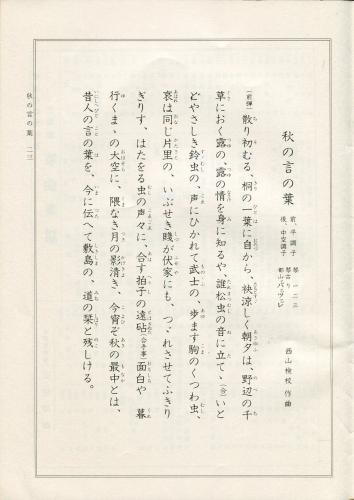 秋の言の葉
前、平調子
後、中空調子
西山検校 作曲
(前弾)散り初むる、桐の一葉に自から、袂涼しく朝夕は、野辺の千
草におく露の、露の情を身に知るや、誰松虫の音に立て、(合)いと
どやさしき鈴虫の、声にひかれて武士の、歩ます駒のくつわ虫、
哀は同じ片里の、いぶせき賤が伏家にも、つゞれさせてふきり
ぎりす、はたをる虫の声々に、合す拍子の遠砧(合手事)面白や 暮
行くまゝの大空に、隈なき月の影清き、今宵ぞ秋の最中とは、
昔人の言の葉を、今に伝へて敷島の、道の栞と残しける。
秋の言の葉 二三